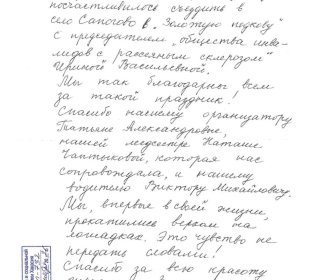 посчастливилось съездить в
село Сапогово в „Золотую подкову"
с председателем „общества инва-
лидов с рассеянным склерозом"
Ириной Васильевной.
Мы так благодарны всем
за такой праздник!
Спасибо нашему организатору
Татьяне Александровне,
нашей медсестре Наташе
Чаптыковой, которая нас
сопровождала, и нашему
водителю Виктору Михайловичу.
Мы, впервые в своей жизни,
прокатились верхом на
лошадках. Это чувство не
передать словами!
Спасибо за всю красоту